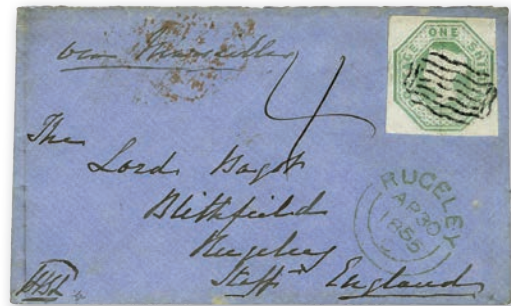 ONE SHI
via Marseilles
4
The
Lord Bagot
Blithfield
Rugeley
Staff England
RUGELEY
AP 30
1855